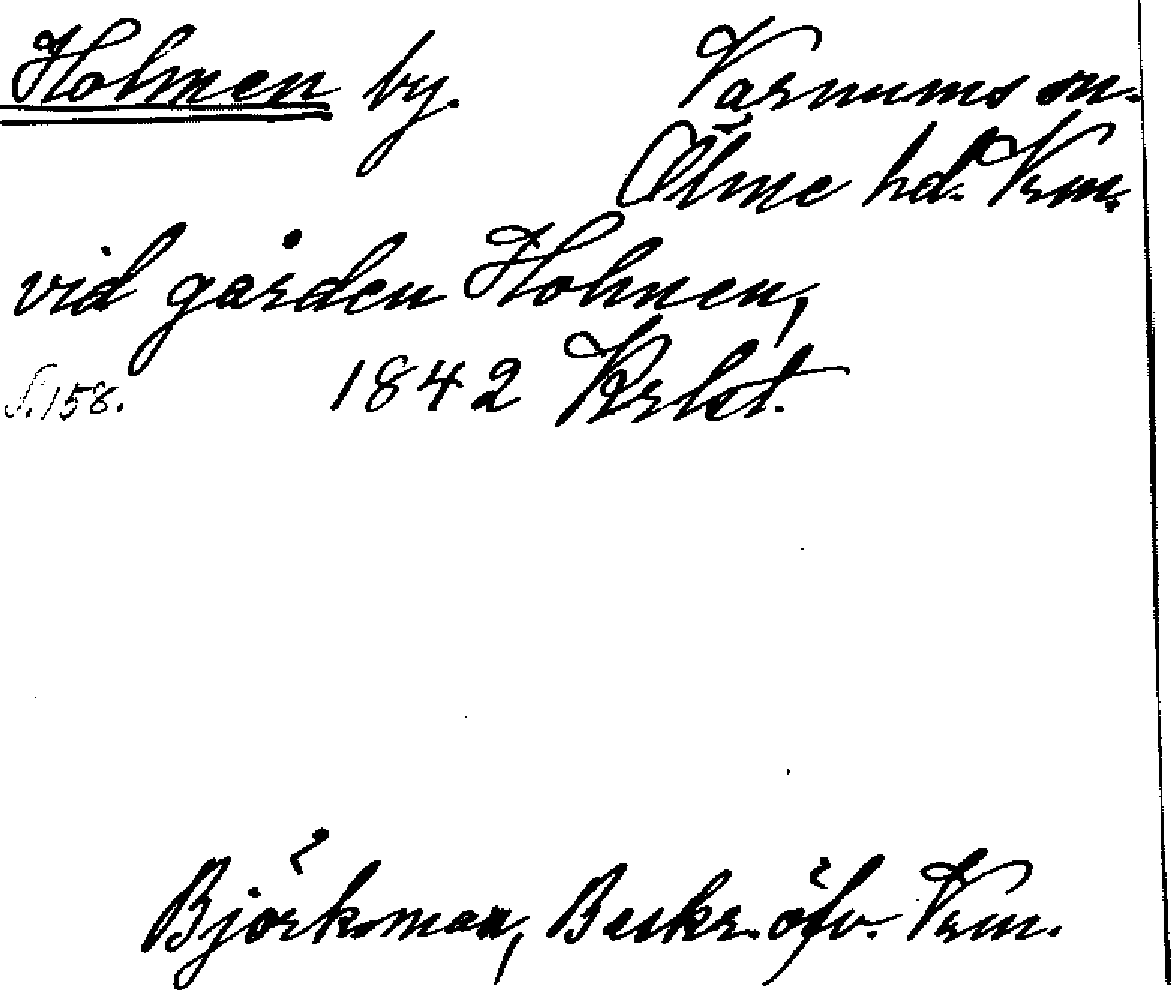 Holmen by. Varnums sn.
Ölme hd. Vrm.
vid gården Holmen,
S. 158. 1842 Krlst.
Björkman, Beskr. öfv. Vrm.